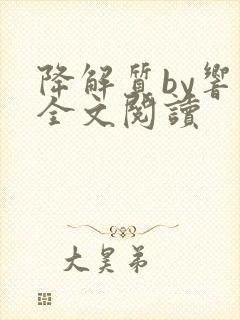 降解質by響
全文閱讀
大昊弟